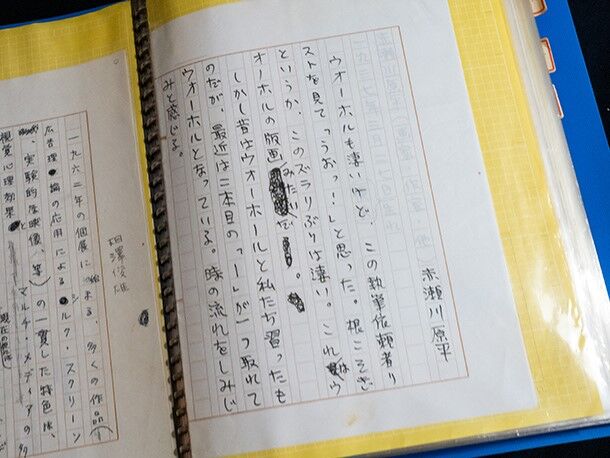 赤瀬川原平
ウオーホルも凄いけど、この執筆依頼者リ
ストを見て「うおっー!」と思った。根こそぎ
というか、このズラリぶりは凄い。これはウ
オーホルの版画みたいだ。
しかし昔はウオーホルと私たち習ったも
のだが、最近は二本目の「ー」が一つ取れて
ウオーホルとなっている。時の流れをしみじ
みと感じる。
相澤俊雄
一九六二年の個展に始まる、多くの作品
広告理論の応用による シルク・スクリーン
実験的な映像、等)の一貫した特色は、
視覚心理効果と マルチ・メディアの多